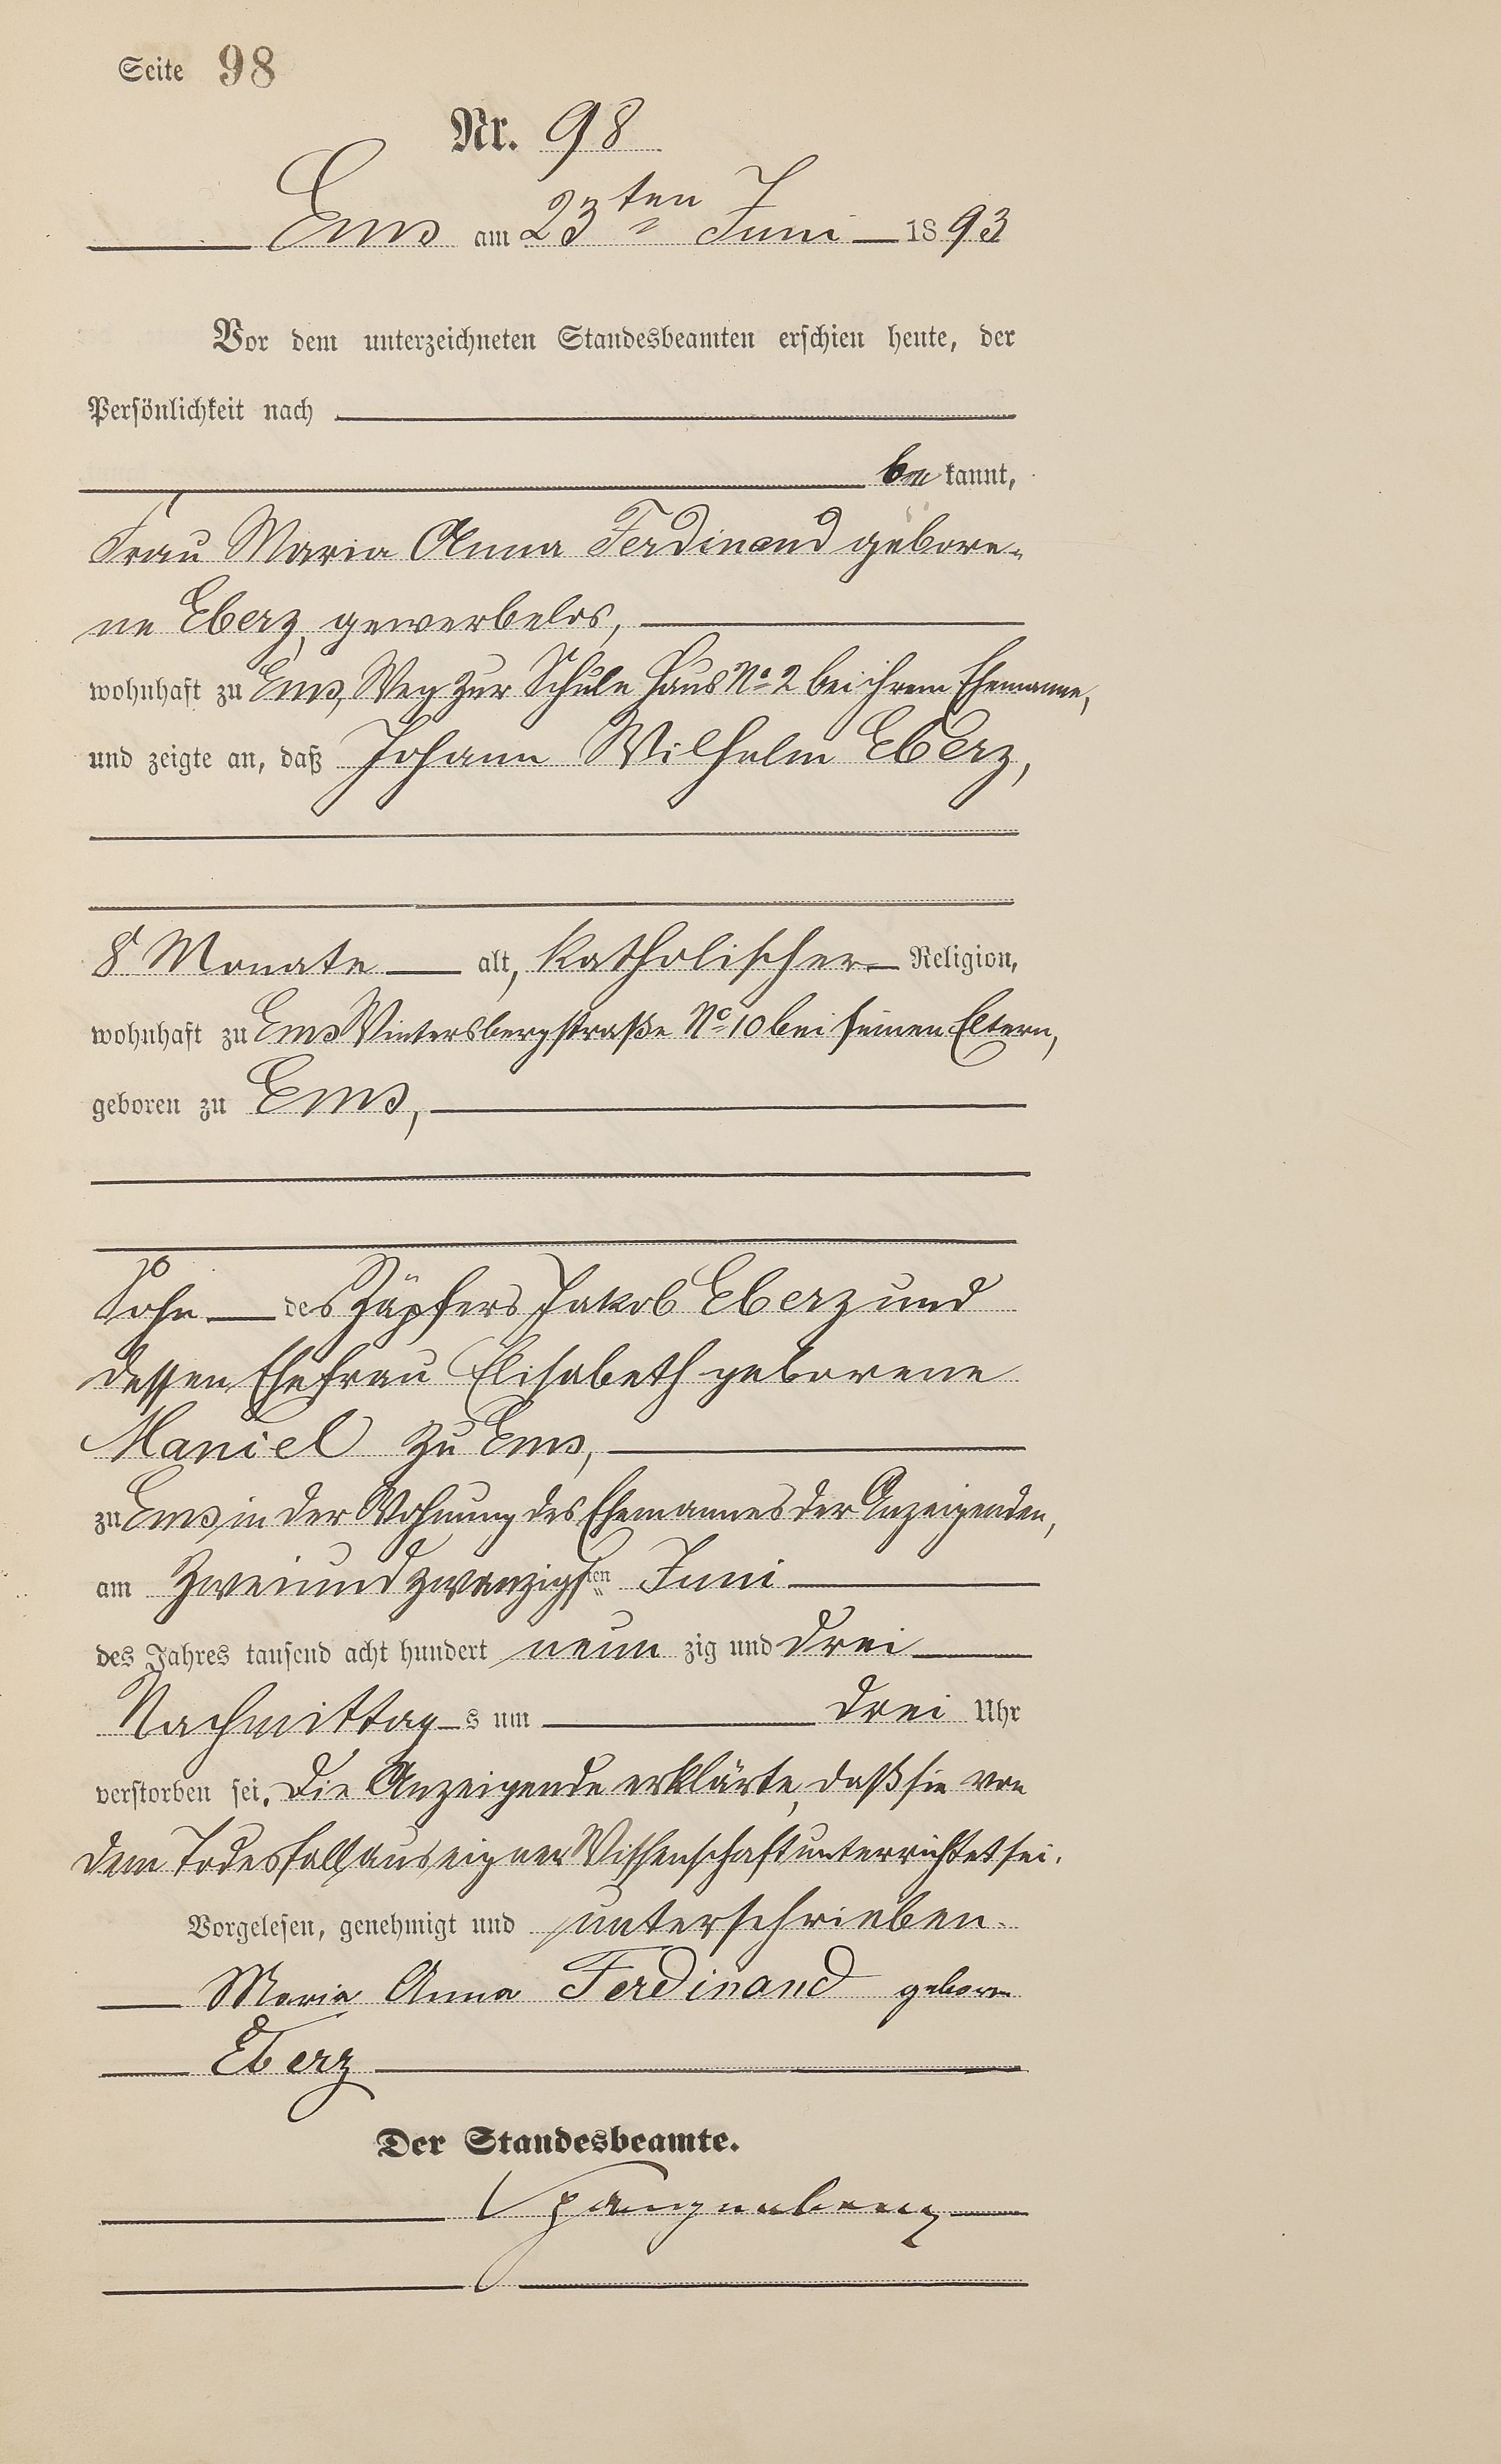 Seite 98
Nr. 98
Ems am 23ten Juni 1893
Vor dem unterzeichneten Standesbeamten erschien heute, der
Persönlichkeit nach
be kannt,
Frau Maria Anna Ferdinand gebore-
ne Eberz, gewerbelos,
wohnhaft zu Ems, Weg zur Schule Haus No 2 bei ihrem Ehemanne,
und zeigte an, daß Johann Wilhelm Eberz,
8 Monate alt, katholischer Religion,
wohnhaft zu Ems Wintersbergstraße No 10 bei seinen Eltern,
geboren zu Ems,
Sohn des Zäpfers Jakob Eberz und
dessen Ehefrau Elisabeth geborene
Maniel zu Ems,
zu Ems in der Wohnung des Ehemannes der Anzeigenden,
am zweiundzwanzigsten Juni
des Jahres tausend acht hundert neun zig und drei
Nachmittag s um drei Uhr
verstorben sei. Die Anzeigende erklärte, daß sie von
dem Todesfall aus eigner Wissenschaft unterrichtet sei.
Vorgelesen, genehmigt und unterschrieben.
Maria Anna Ferdinand geborne
Eberz
Der Standesbeamte.
Spangenberg